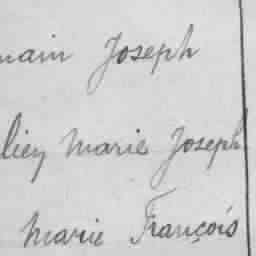 main Joseph
lien Marie Joseph
Marie François